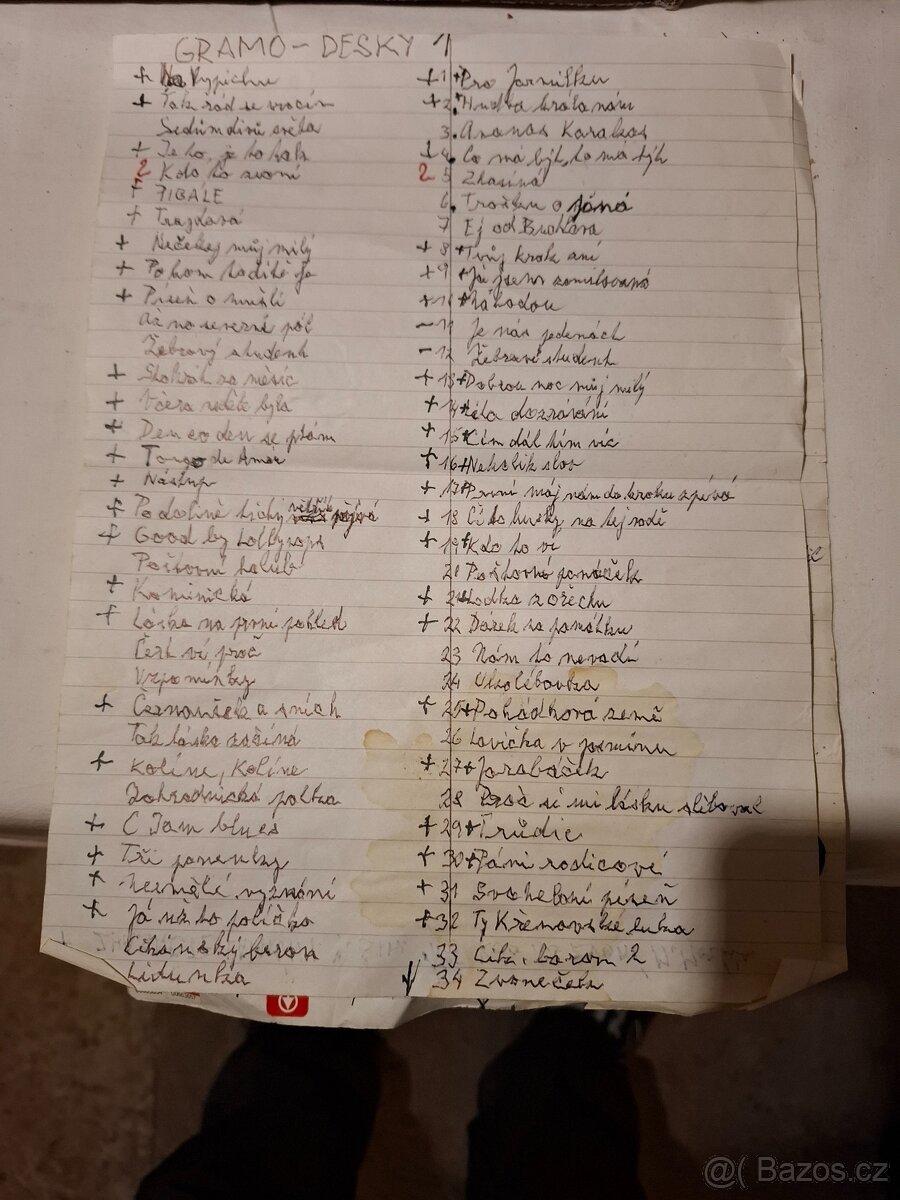 GRAMO-DESKY 1
+ Na Vypichu
+ Tak rád se vracím
Sedum divů světa
+ Je to, je to tak
2 Kdo to zvoní
+ FIBÁLE
+
+ Nečekej můj milý
+ Po kom to dítě je
+ Píseň o mušli
Až na severní pól
Žebravý student
+ Stokrát za měsíc
+ Včera neděle byla
+ Den co den se ptám
+ Tango de Amor
+ Nástup
+ Podobně tichý větřík
+ Good by Lollypops
Poštovní holub
+ Kominická
+ Láska na první pohled
Čert ví proč
Vzpomínky
+ Černoušek a sníh
Tak láska začíná
+ Kolíne, Kolíne
Zahradnická polka
+ C Jam blues
+ Tři panenky
+ Nesmělé vyznání
+ Já už to políčko
Cikánský baron
Lidunka
+ 1 + Pro Jarmilku
+ 2. Hudba hrála nám
3. Ananas Karabas
+ 4. Co má být, to má být
2 5 Zhasíná
6. Trošku o
7 Ej od Buchlova
+ 8 + Tvůj krok zní
+ 9 + Já jsem zamilovaná
+ 10 + Náhodou
- 11 Je nás jedenáct
- 12 Žebravý student
+ 13 + Dobrou noc můj milý
+ 14 + Léta dozrávání
+ 15 + Čím dál tím víc
+ 16 + Několik slov
+ 17 + První máj nám do kroku zpívá
+ 18 Či to husky na tej vodě
+ 19 + Kdo to ví
20 Poštovní panáček
+ 21 Loďka z ořechu
+ 22 Dárek na památku
23 Nám to nevadí
24 Ukolébavka
+ 25 + Pohádková země
26 Lavička v
+ 27 + Jarabáček
28 Proč si mi lásku sliboval
+ 29 + Trůdie
+ 30 + Páni rodičové
+ 31 Svatební píseň
+ 32 Ty Křenovské luka
33 Cik. baron 2
34 Zvoneček
@( Bazos.cz